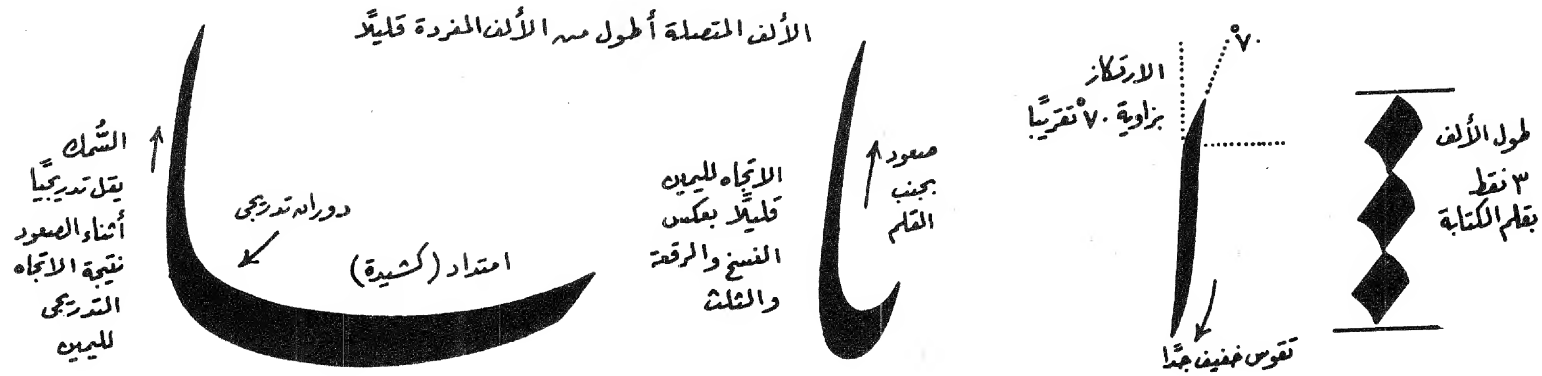 الألف المتصلة أطول من الألف المفردة قليلًا
طول الألف
٣ نقط
بقلم الكتابة
٧٠°
الارتكاز
بزاوية ٧٠° تقريبًا
تقوس خفيف جدًا
صعود
بجنب
القلم
الاتجاه لليمين
قليلًا بعكس
النسخ والرقعة
والثلث
امتداد (كشيدة)
دوران تدريجى
السُّمك
يقل تدريجيًا
أثناء الصعود
نتيجة الاتجاه
التدريجى
لليمين